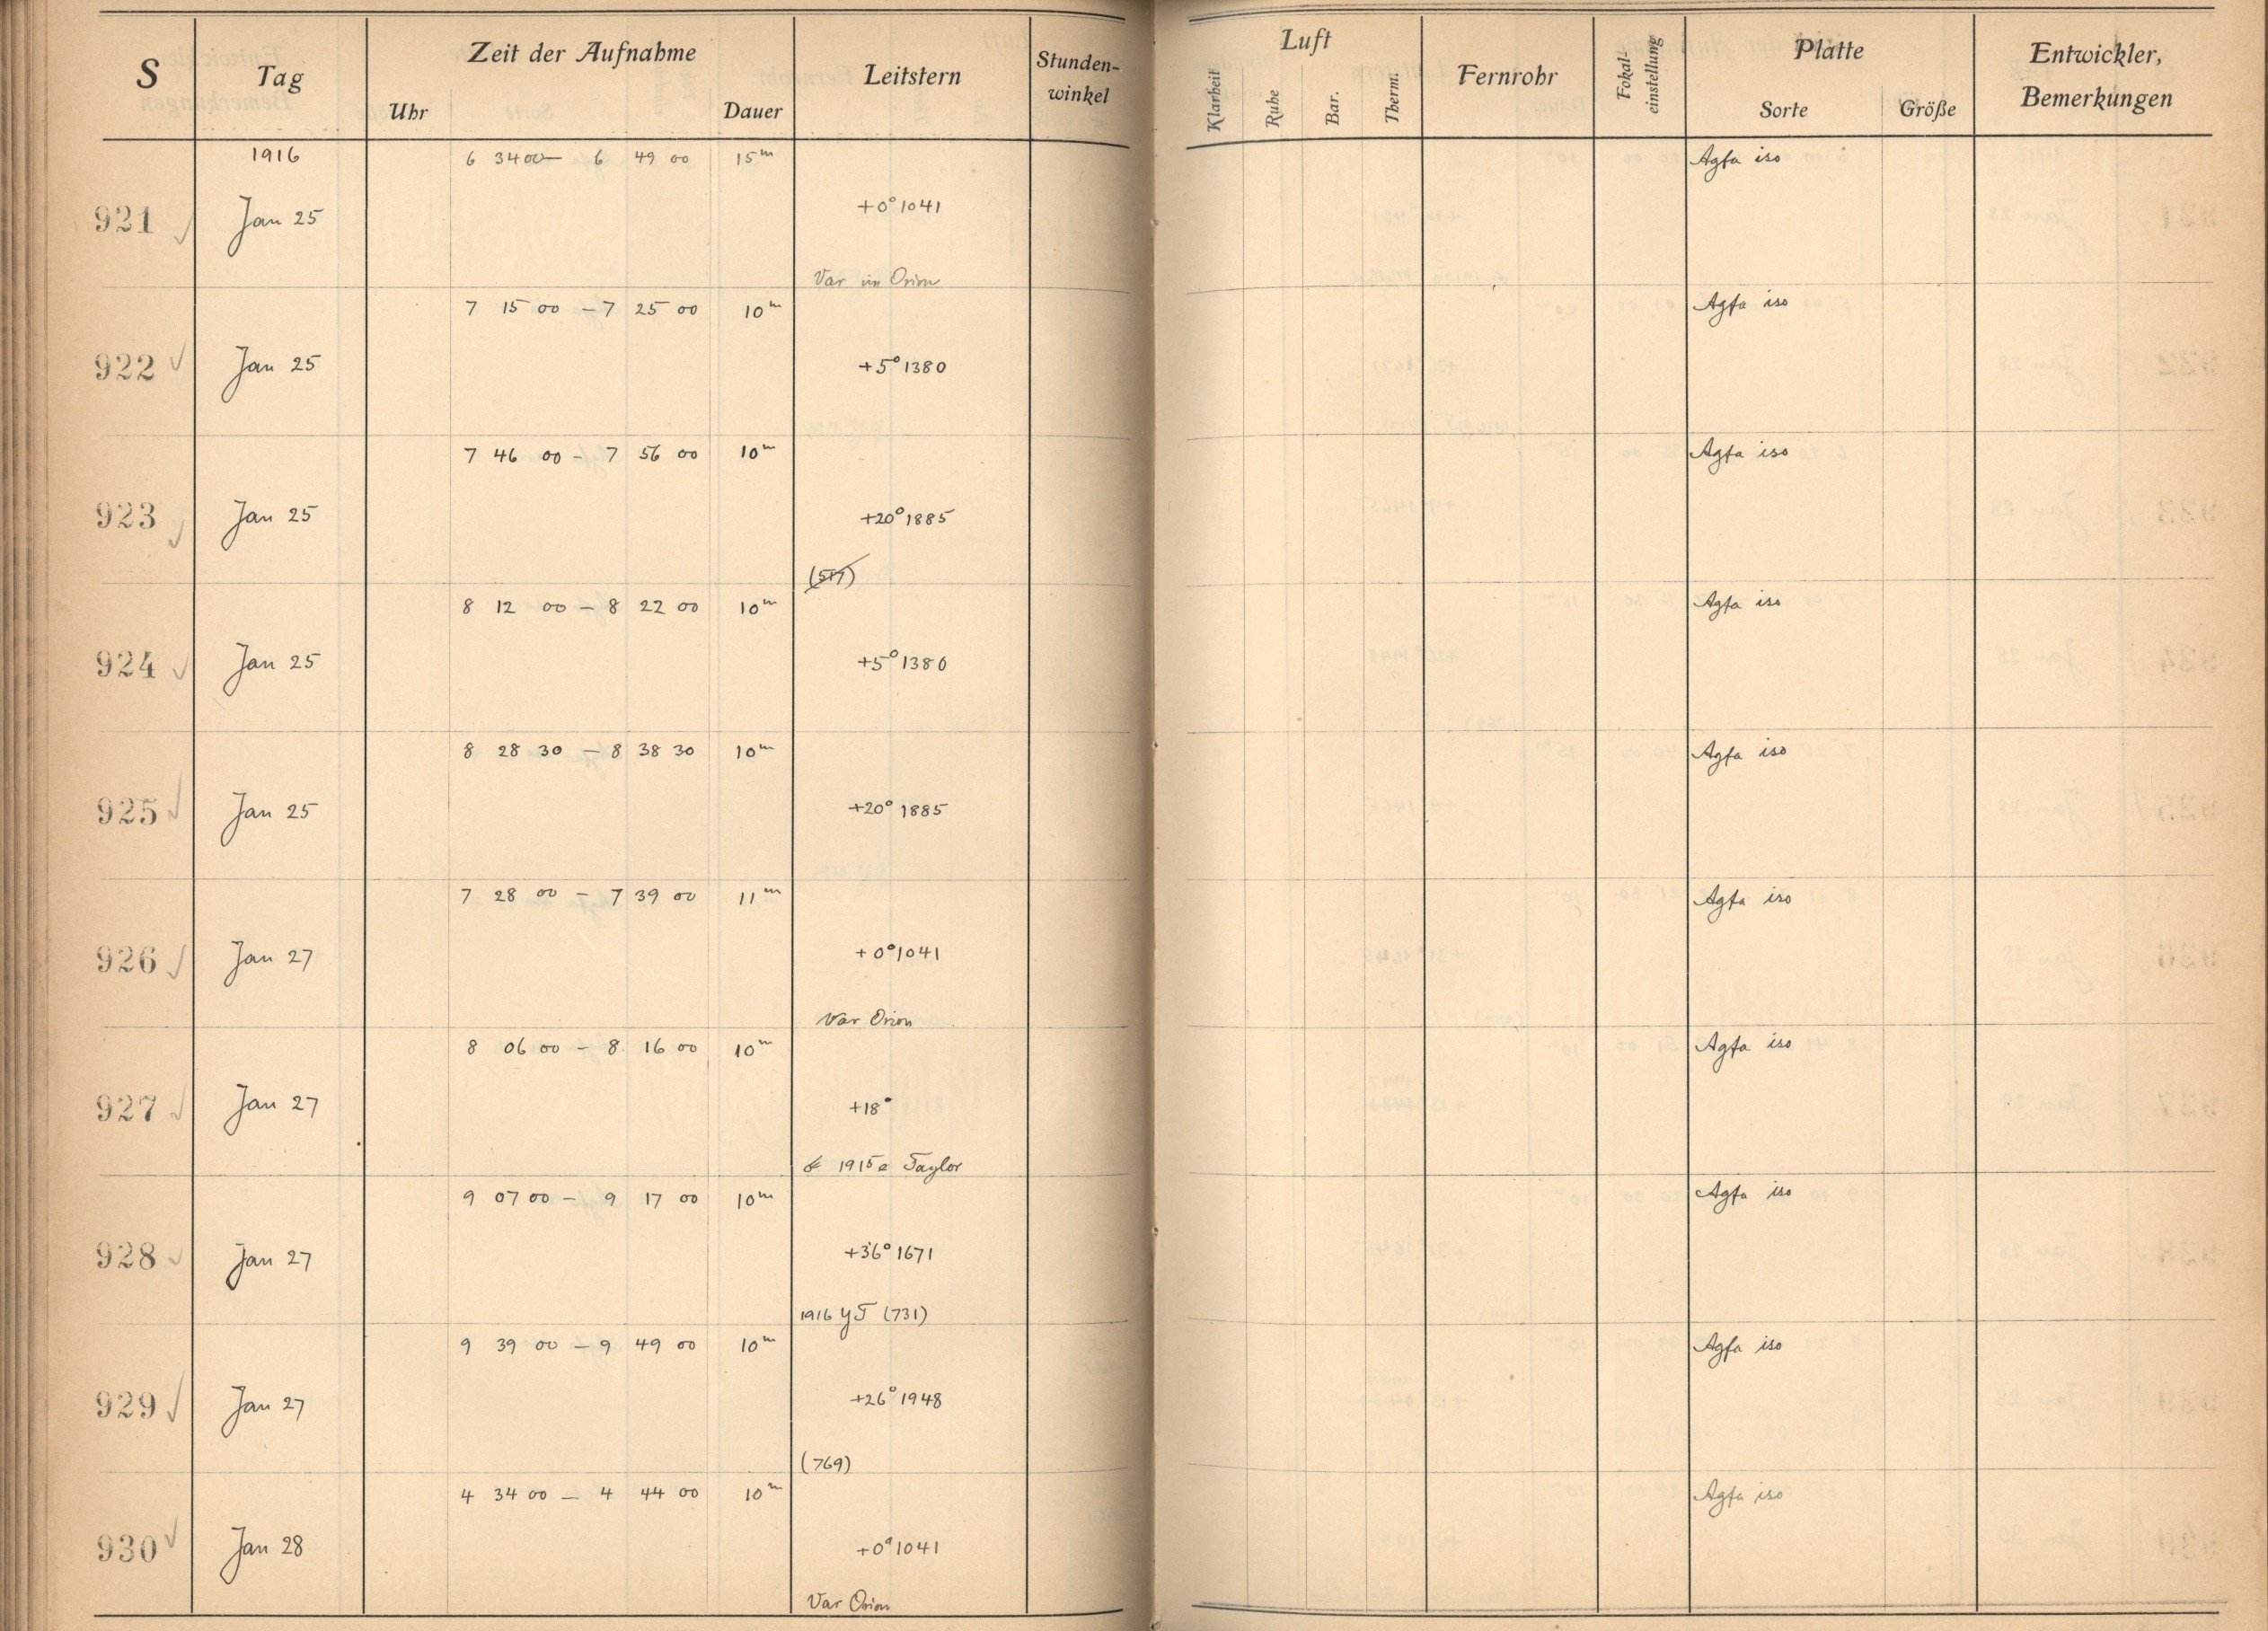 S Tag Zeit der Aufnahme Leitstern Stunden-winkel Luft Fernrohr Fokal-einstellung Platte Entwickler, Bemerkungen
Uhr Dauer Klarheit Ruhe Bar. Therm. Sorte Größe
1916 6 34 00 — 6 49 00 15m Agfa iso
921 Jan 25 +0° 1041
Var im Orion
7 15 00 — 7 25 00 10m Agfa iso
922 Jan 25 +5° 1380
7 46 00 — 7 56 00 10m Agfa iso
923 Jan 25 +20° 1885
(517)
8 12 00 — 8 22 00 10m Agfa iso
924 Jan 25 +5° 1380
8 28 30 — 8 38 30 10m Agfa iso
925 Jan 25 +20° 1885
7 28 00 — 7 39 00 11m Agfa iso
926 Jan 27 +0° 1041
Var Orion
8 06 00 — 8 16 00 10m Agfa iso
927 Jan 27 +18°
1915e Taylor
9 07 00 — 9 17 00 10m Agfa iso
928 Jan 27 +36° 1671
1916 YT (731)
9 39 00 — 9 49 00 10m Agfa iso
929 Jan 27 +26° 1948
(769)
4 34 00 — 4 44 00 10m Agfa iso
930 Jan 28 +0° 1041
Var Orion